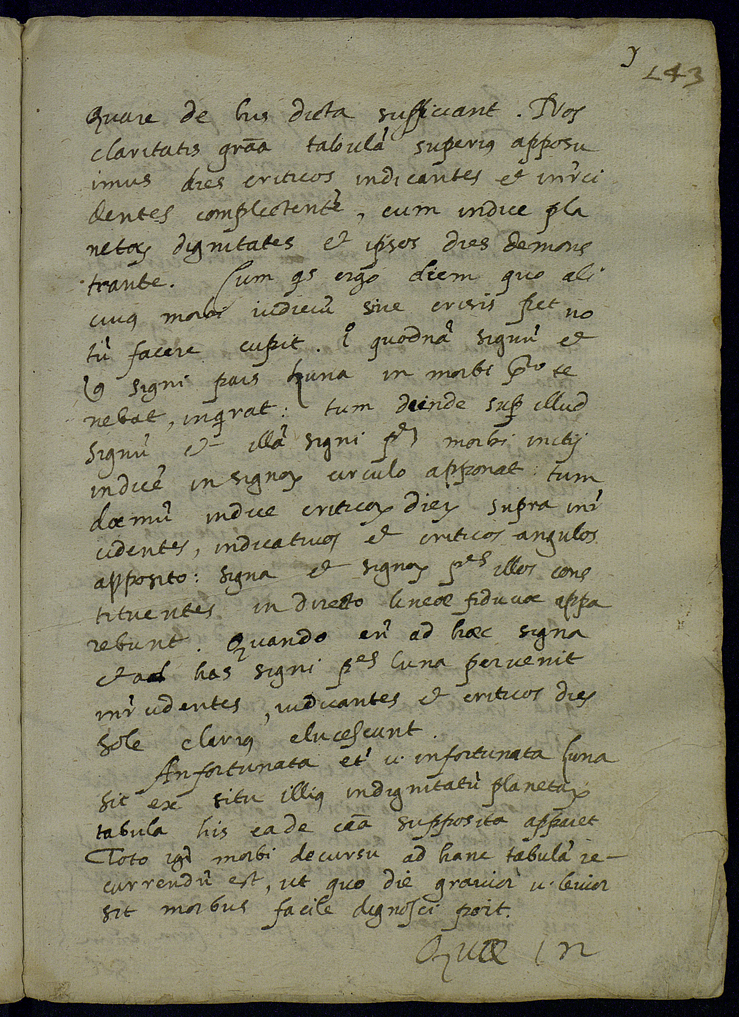 y
143
Quare de his dicta sufficiant. Nos
claritatis grãa tabulã superiꝰ apposu
imus dies criticos indicantes et intˀci
dentes complectentẽ, cum indice pla
netaꝝ dignitates et ipsos dies demons
trante. Cum qs ergo diem quo ali
cuiꝰ morbi iudiciũ sive crisis fiet no
tũ facere cupit. quodnã signũ et
signi pars Luna in morbi pº te
nebat, inqrat: tum deinde sup illud
signũ et illã signi pẽ morbi initij
indicẽ in signoꝝ circulo apponat: tum
demũ indice criticoꝝ dieꝝ supra intˀ
cidentes, indicativos et criticos angulos
apposito: signa et signoꝝ pes illos cons
tituentes in directo lineæ fiduciæ appa
rebunt. Quando enˀ ad hæc signa
et ad has signi pes Luna pervenit
intˀcidentes, indicantes et criticos dies
sole clariꝰ elucescunt.
An fortunata etˀ u. infortunata Luna
sit ex situ illiꝰ indignitatũ planetaꝝ
tabula his eade cãa supposita apparet
Toto igˀ morbi decursu ad hanc tabulã re-
currendũ est, ut quo die gravior u. levior
sit morbus facile dignosci poit.
Quæ in